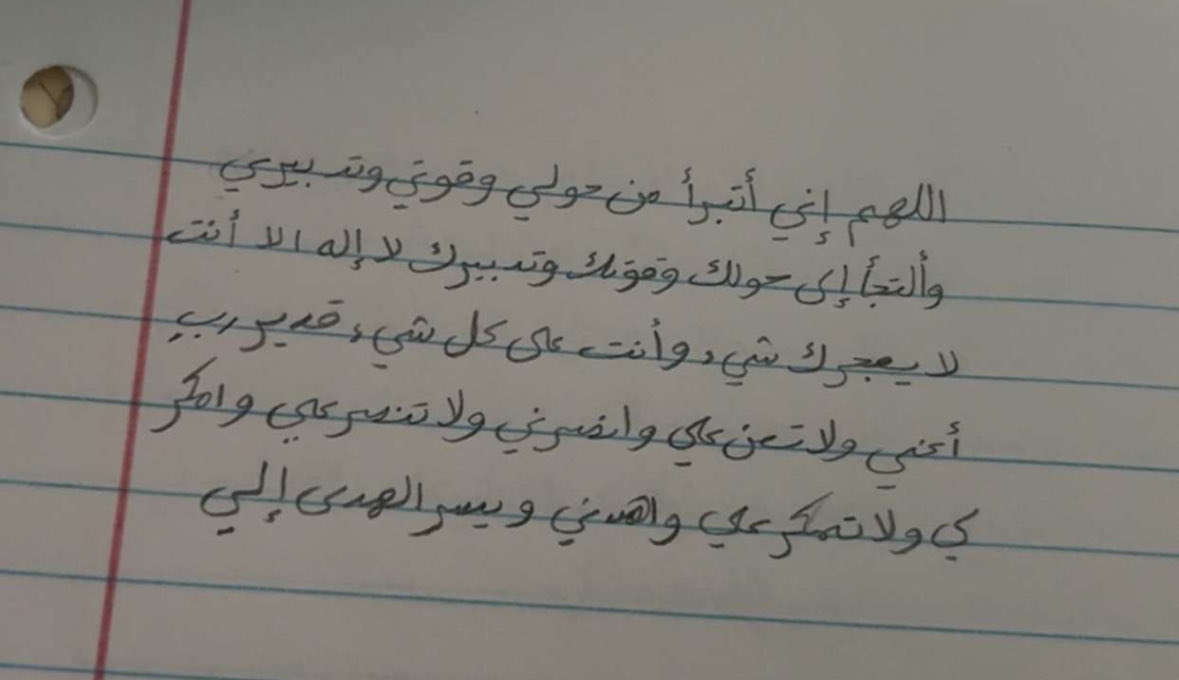 اللهم إني أتبرأ من حولي وقوتي وتدبيري
وألتجأ إلى حولك وقوتك وتدبيرك لا إله الا أنت
لا يعجزك شيء وأنت على كل شيء قدير رب
أعني ولا تعن علي وانصرني ولا تنصر علي وامكر
لي ولا تمكر علي واهدني ويسر الهدى إلي